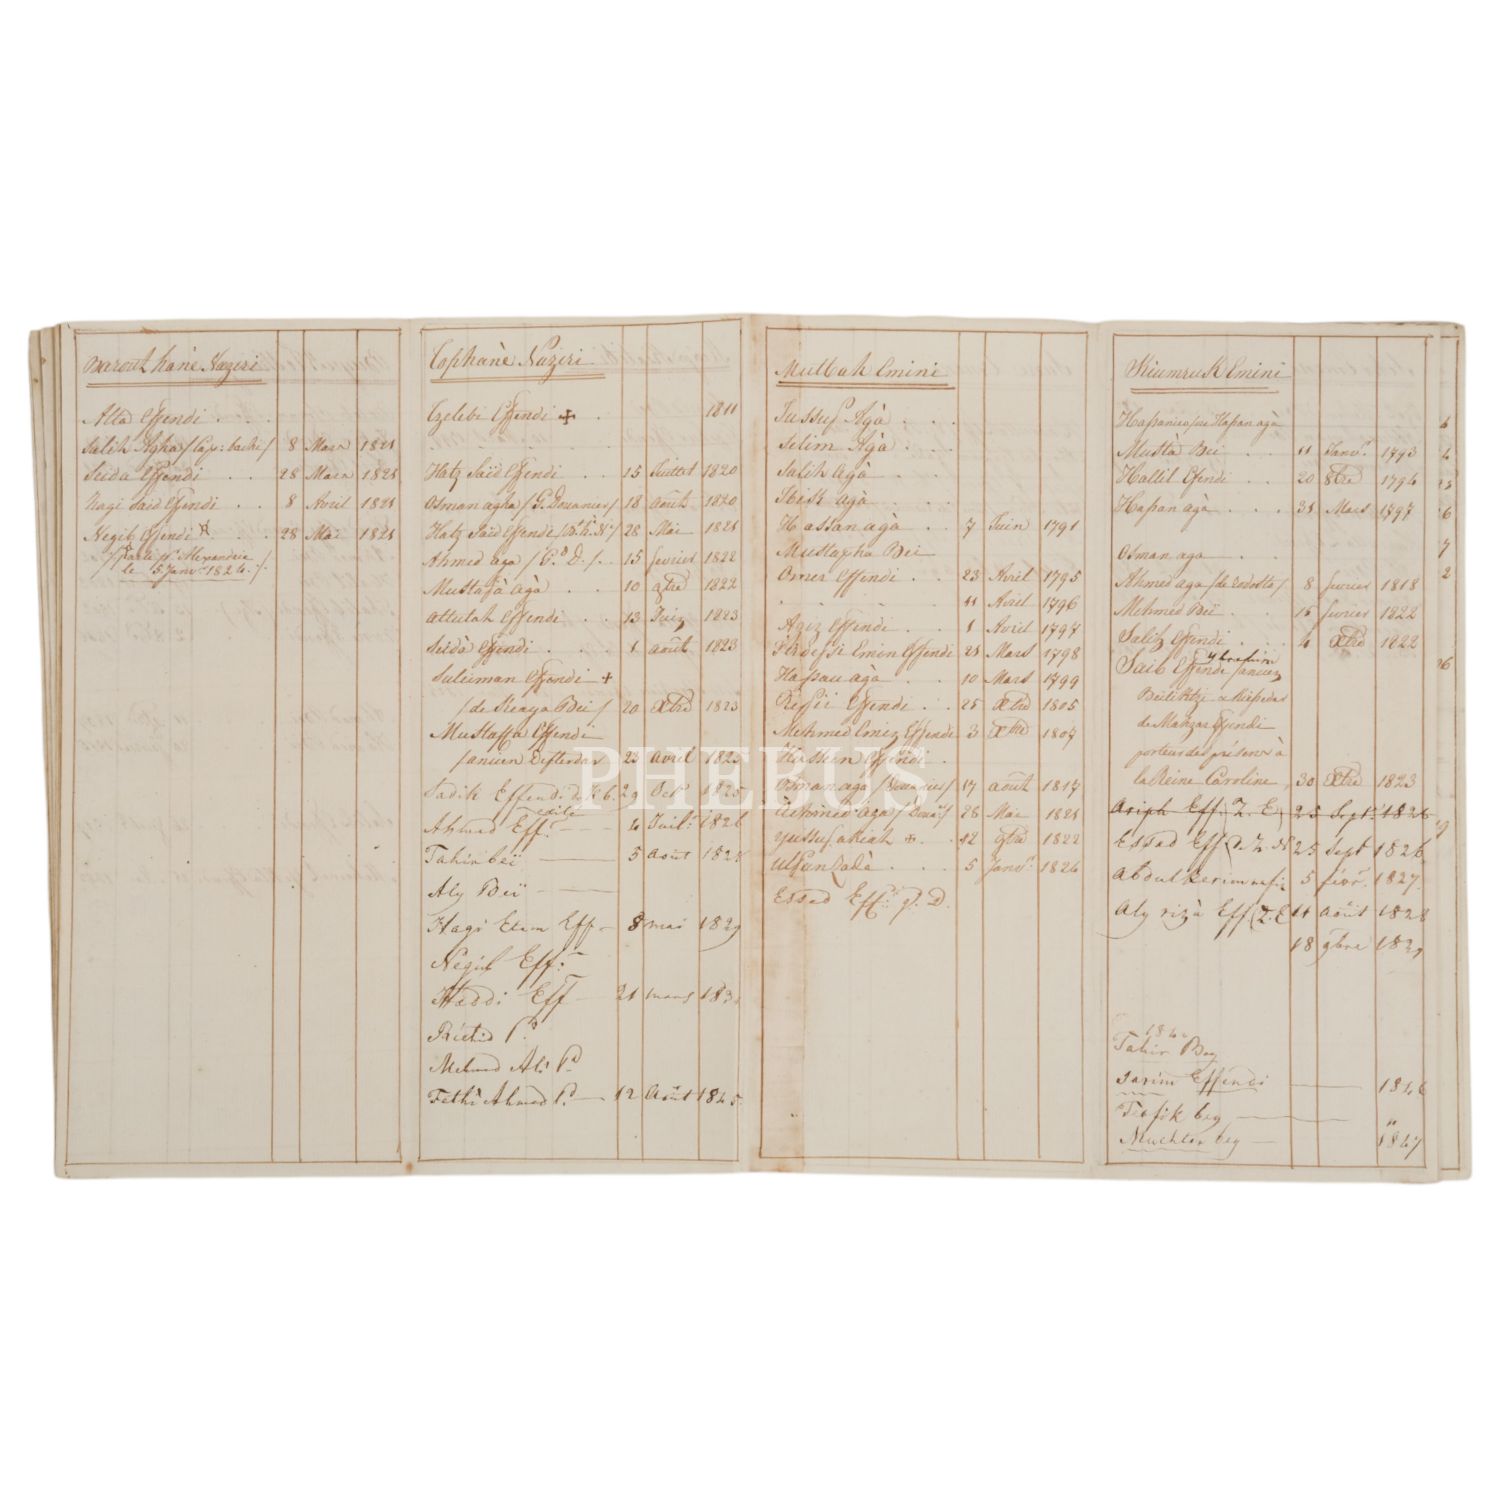 Barouthanè Naziri
Atta Effendi
Salih Agha / Cap: bachi / 8 Mars 1821
Seida Effendi 28 Mars 1821
Nagi Said Effendi 8 Avril 1821
Negib Effendi 28 Mai 1821
/ Parti pr Alexandrie
le 5 Janv. 1824. /
Tophanè Naziri
Czelebi Effendi 1811
Hatz Said Effendi 15 Juillet 1820
Osman agha / G. Douanier / 18 août 1820
Hatz Said Effendi 28 Mai 1821
Ahmed aga / Gd D. / 15 fevrier 1822
Mustafà Agà 10 9bre 1822
Attulah Effendi 13 Juin 1823
Seidà Effendi 1 août 1823
Suleiman Effendi +
/ de Kieaya Bei / 20 Xbre 1823
Mustaffa Effendi
/ ancien Defterdar 23 avril 1825
Sadik Effendi 29 Oct 1825
Ahmed Eff. 4 Juil. 1826
Tahir beï 5 Aout 1828
Aly Beï
Hagi Etem Eff 8 mai 1829
Negib Eff.
Haddi Eff 21 mars
P.
Mehmed Ali P.
Fethi Ahmed P. 12 Août 1845
Mutbak Emini
Jussuf Agà
Selim Agà
Salih agà
Ibish agà
Hassan agà 7 Juin 1791
Mustapha Bei
Omer Effendi 23 Avril 1795
11 Avril 1796
Aziz Effendi 1 Avril 1797
Emin Effendi 21 Mars 1798
Hassan agà 10 Mars 1799
Refii Effendi 25 Xbre 1805
Mehmed Emin Effendi 3 Xbre 1807
Hussein Effendi
Osman aga / Douanier / 17 août 1817
Achmed Aga / Doua / 28 Mai 1821
Yussuf akiah + 12 9bre 1822
5 Janvr. 1826
Essad Eff. p. D.
Kiumruk Emini
Hassan agà
Mustà Bei 11 Janvr. 1793
Hallil Efendi 20 8bre 1794
Hassan agà 31 Mars 1797
Osman aga
Ahmed aga / de Rodosto / 8 fevrier 1818
Mehmed Beï 15 fevrier 1822
Salih Effendi 4 Xbre 1822
Ybrahim
Saib Effendi / ancien
Beiliktzi
de Mahzar Effendi
porteur des présens à
la Reine Caroline, 30 Xbre 1823
Ariph Eff. (Z. E) 25 Sept. 1826
Essad Eff 25 Sept 1826
Abdul Kerim 5 févr. 1827.
Aly rizà Eff (Z. E 11 Août 1828
18 9bre 1829
Tahir Bey
Effendi 1846
Tevfik bey "
Muchtar bey 1847
PHEBUS